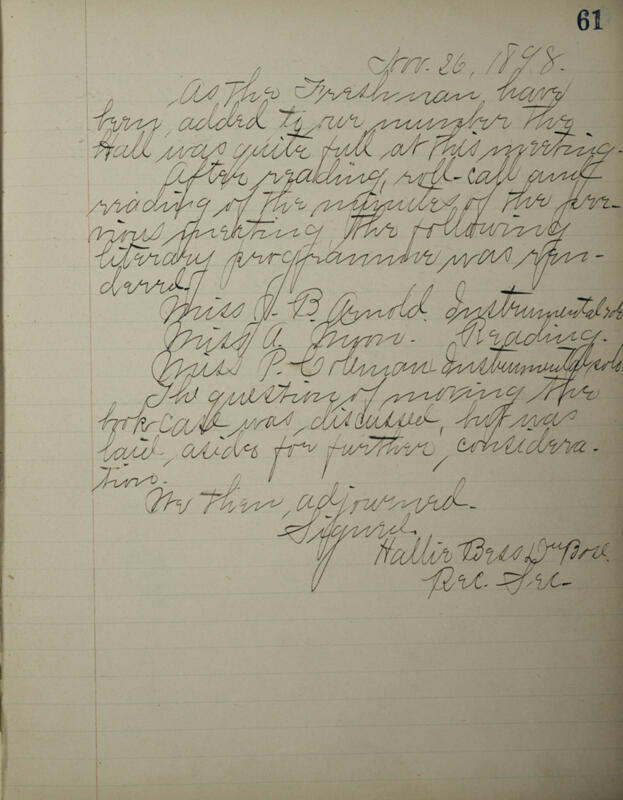 61
Nov. 26, 1898.
As the Freshman have
been added to our number the
Hall was quite full at this meeting.
After reading, roll-call and
reading of the minutes of the pre-
vious meeting, the following
literary programme was ren-
dered.
Miss J. B. Arnold. Instrumental solo
Miss A. Moon. Reading.
Miss P. Coleman Instrumental solo
The question of moving the
book case was discussed, but was
laid aside for further considera-
tion.
We then adjourned.
Signed.
Hallie Bess DuBose.
Rec. Sec.